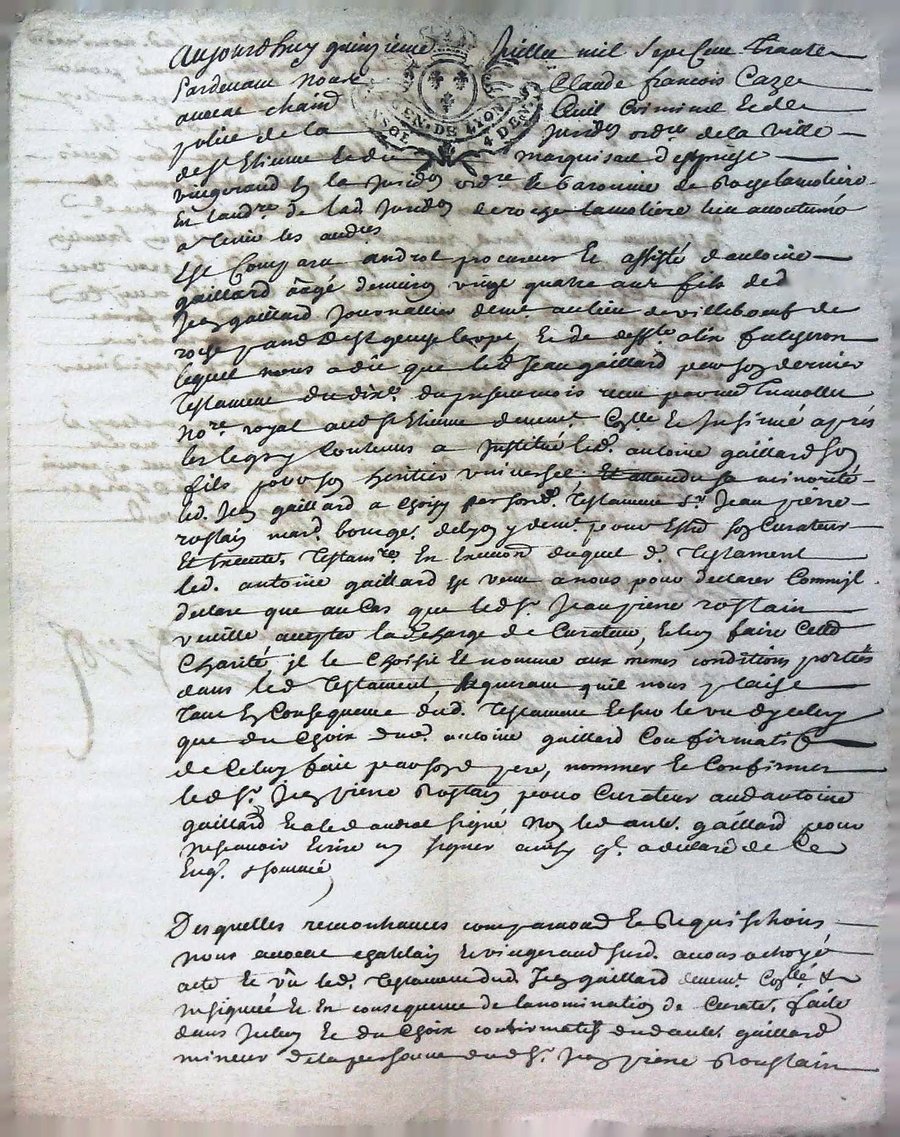 Aujourdhuy quinzieme Juillet mil Sept Cent Trante
Pardevant Nous Claude francois Caze
avocat chatelain Civil Criminel et de
GEN. DE LYON
police de la Jurisdon ordre de la ville
de St Etienne et du marquisat despriest
vingerand En la Jurison ordre et baronnie de Roche lamoliere
En landre de lad. Jurison de roche lamoliere lieu accoutumé
a tenir les audces
Est Comparu androt procureur et assisté dantoine
gaillard aagé denviron vingt quatre ans fils de
Jean gaillard Journallier demt au lieu de villebœuf de
lequel nous a dit que led Jean gaillard par son dernier
Testament du dixe du present mois recu par me
nore royal aud St Etienne deuemt Collé et Insinué après
les legs y Contenus a Institué led. antoine gaillard son
fils pour son heritier universel Et attendu sa minorité
led. Jean gaillard a choisy par sond. Testament Sr. Jean pierre
rostain mard. bourge. de lyon y demt. pour Estre son Curateur
Et Executr. Testamre. En Execuon duquel d. Testament
led. antoine gaillard est venu a nous pour declarer Comme il
declare que au Cas que led Sr. Jean pierre rostain
veuille accepter la Charge de Curateur, et luy faire Cette
Charité, il le Choisit Et nomme aux memes conditions portées
dans led Testament, Requerant quil nous plaise
Tant En Consequence dud. Testament Et sur le vu dyceluy
que du Choix dud. antoine gaillard Confirmatif
de Celuy fait par sond pere, nommer Et Confirmer
led Sr. Jean pierre Rostain pour Curateur aud antoine
gaillard Et a led androt signé Non led ant. gaillard pour
ne scavoir Ecrire ny signer ainsy ql. a declaré de Ce
Enqs. & sommé
Desquelles remontrances comparuond Et Requisitions
nous avocat chatelain Et vingerand susd. avons octroyé
acte Et vû led. Testament dud. Jean gaillard deuemt Collé &
insinué Et En consequence de la nomination de Curatr. faite
dans Iceluy Et du Choix confirmatif dud ant. gaillard
mineur de la personne dud Sr. Jean pierre Roustain